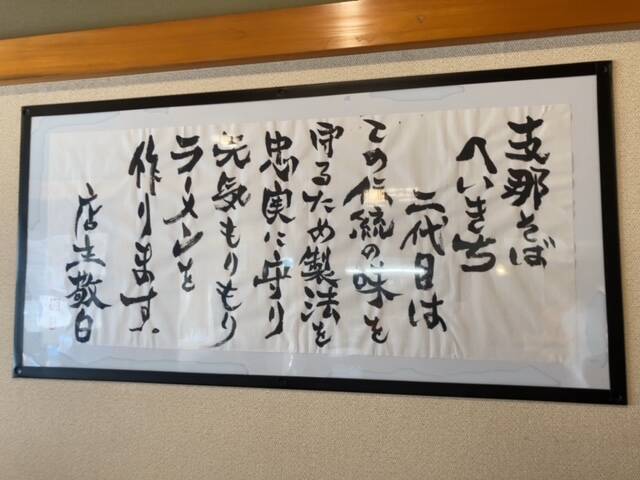 支那そば
へいきち
二代目は
この伝統の味を
守るため製法を
忠実に守り
元気もりもり
ラーメンを
作ります。
店主敬白